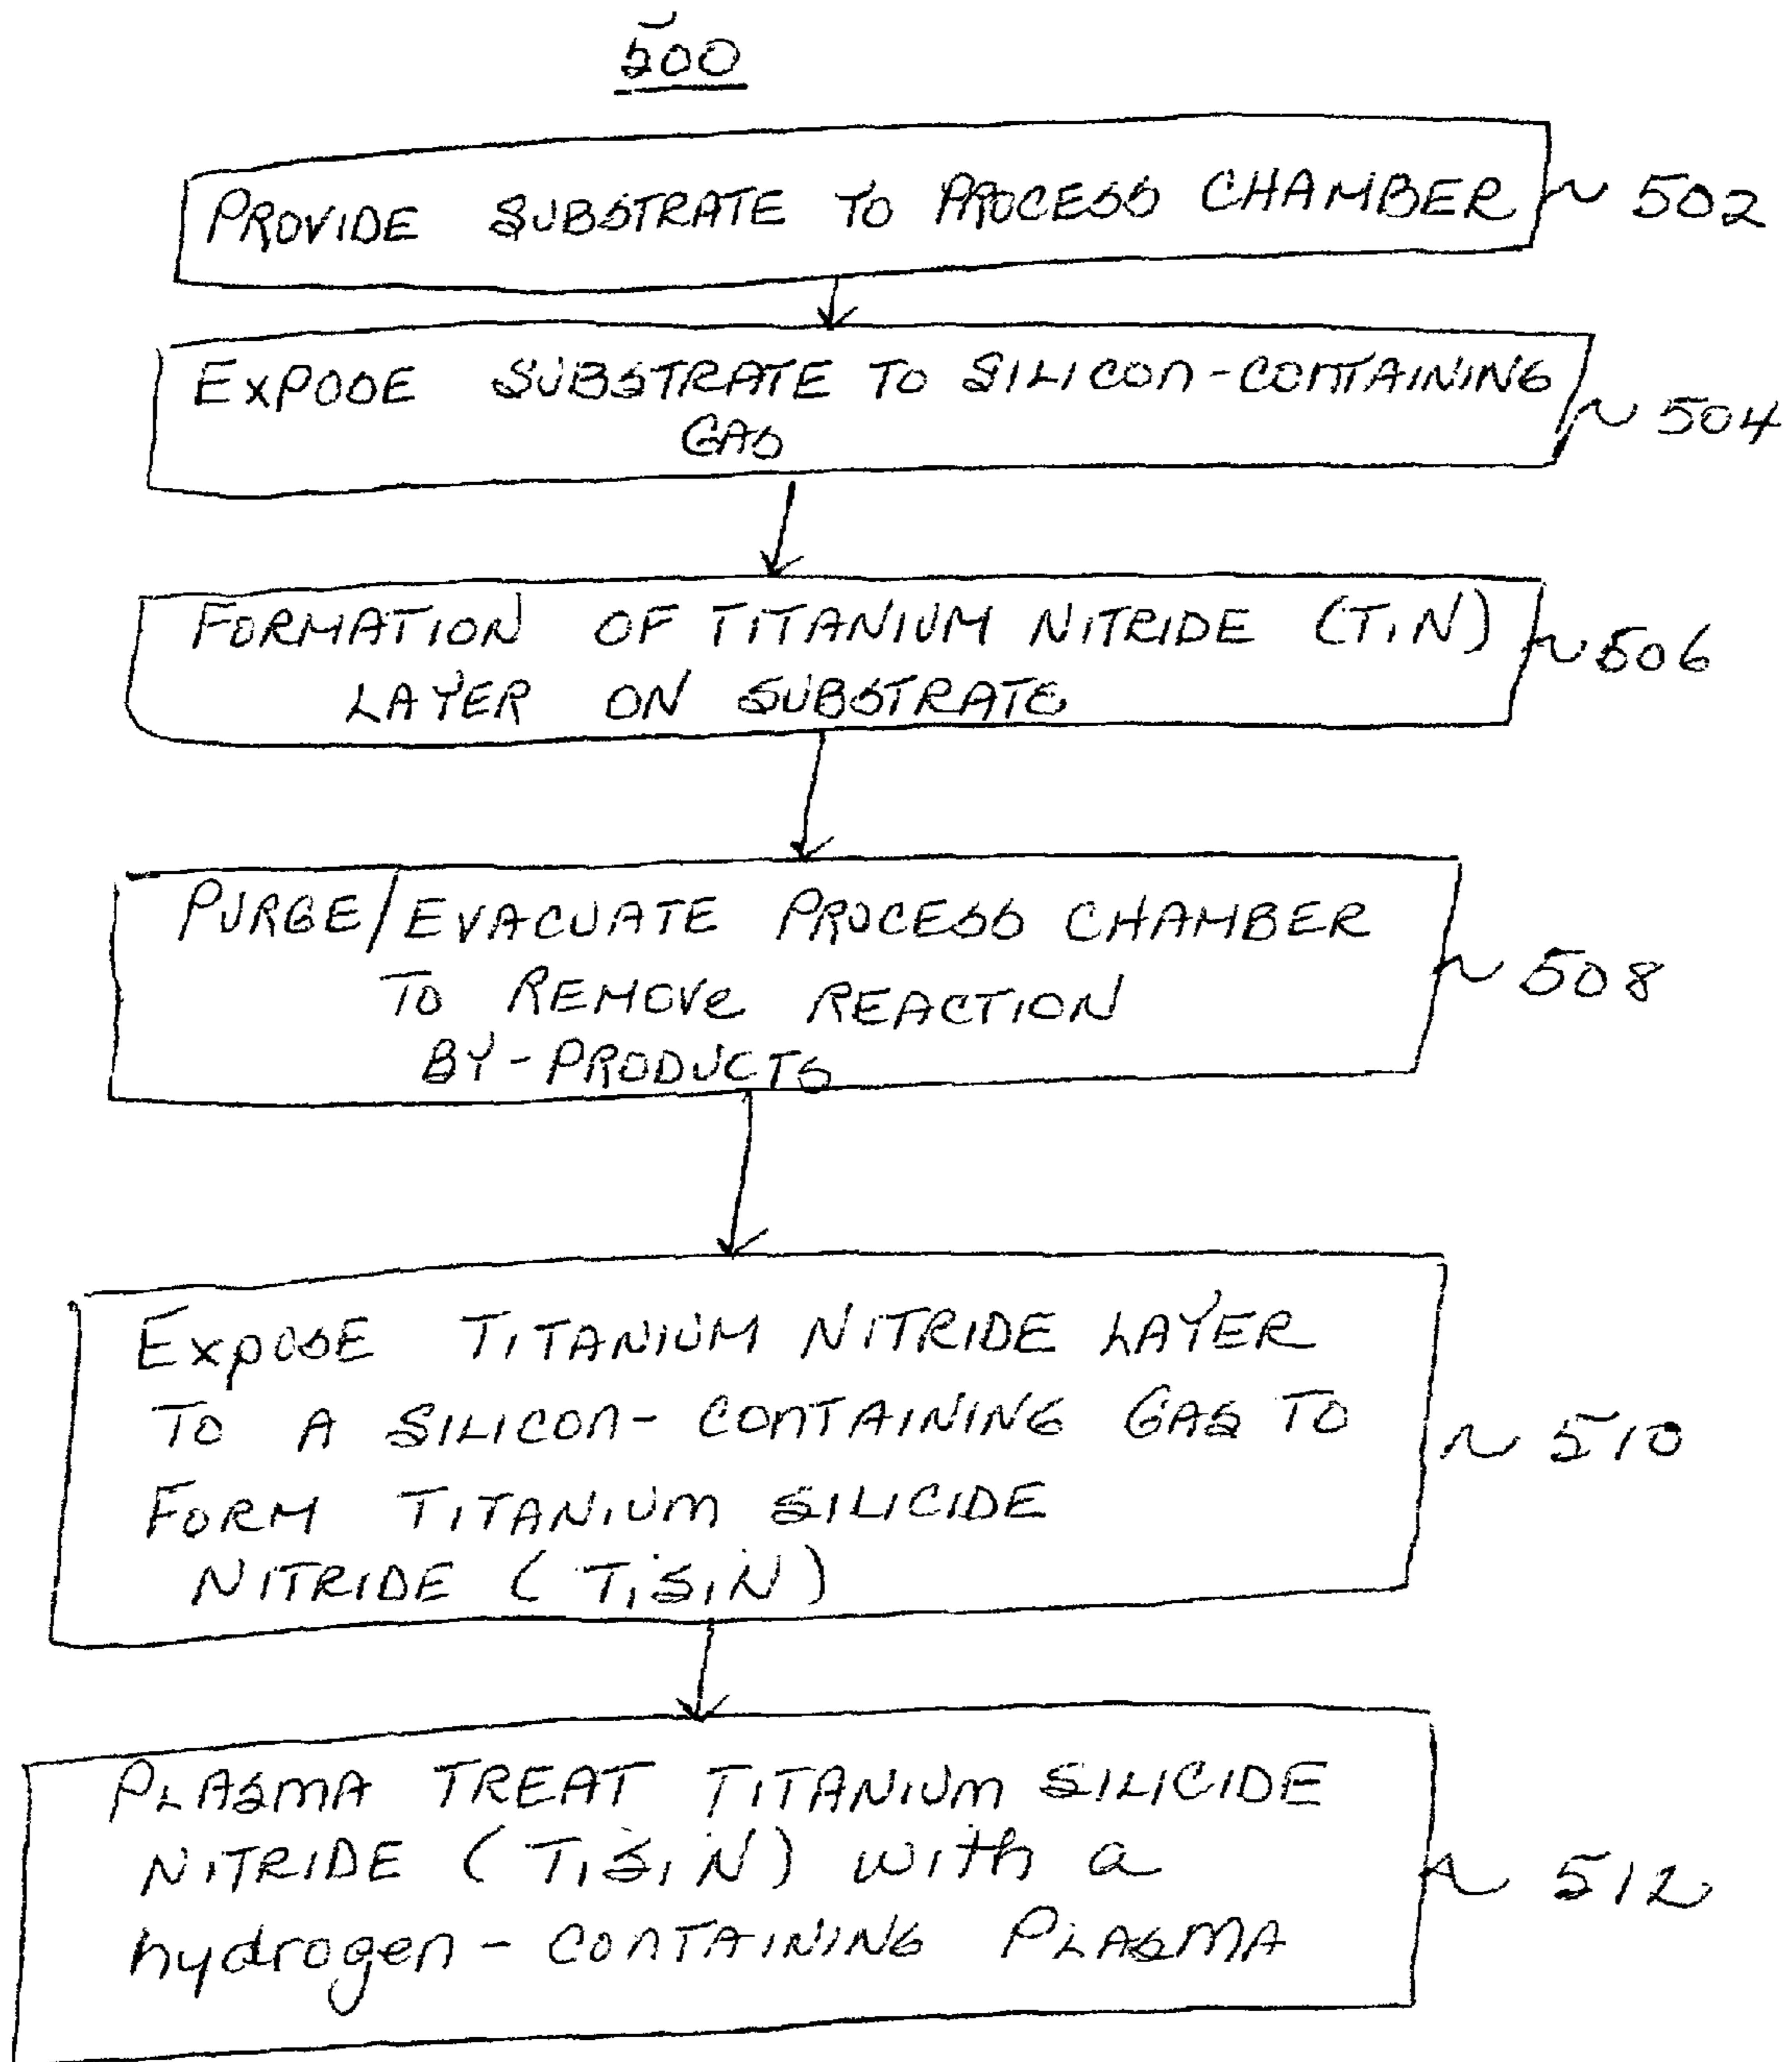 500
PROVIDE SUBSTRATE TO PROCESS CHAMBER ~ 502
EXPOSE SUBSTRATE TO SILICON-CONTAINING
GAS ~ 504
FORMATION OF TITANIUM NITRIDE (TiN) ~ 506
LAYER ON SUBSTRATE
PURGE/EVACUATE PROCESS CHAMBER
TO REMOVE REACTION ~ 508
BY-PRODUCTS
EXPOSE TITANIUM NITRIDE LAYER
TO A SILICON-CONTAINING GAS TO ~ 510
FORM TITANIUM SILICIDE
NITRIDE (TiSiN)
PLASMA TREAT TITANIUM SILICIDE
NITRIDE (TiSiN) with a ~ 512
hydrogen-CONTAINING PLASMA